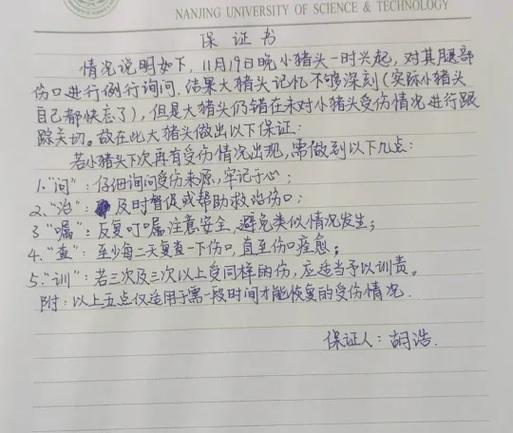 NANJING UNIVERSITY OF SCIENCE & TECHNOLOGY
保证书
情况说明如下，11月19日晚小猪头一时兴起，对其腿部
伤口进行例行询问，结果大猪头记忆不够深刻（实际小猪头
自己都快忘了），但是大猪头仍错在未对小猪头受伤情况进行跟
踪关切。故在此大猪头做出以下保证：
若小猪头下次再有受伤情况出现，需做到以下几点：
1."问"：仔细询问受伤来源，牢记于心；
2."治"：及时督促或帮助救治伤口；
3"嘱"：反复叮嘱注意安全，避免类似情况发生；
4."查"：至少每三天复查一下伤口，直至伤口痊愈；
5."训"：若三次及三次以上受同样的伤，应适当予以训责。
附：以上五点仅适用于需一段时间才能恢复的受伤情况.
保证人：胡浩.